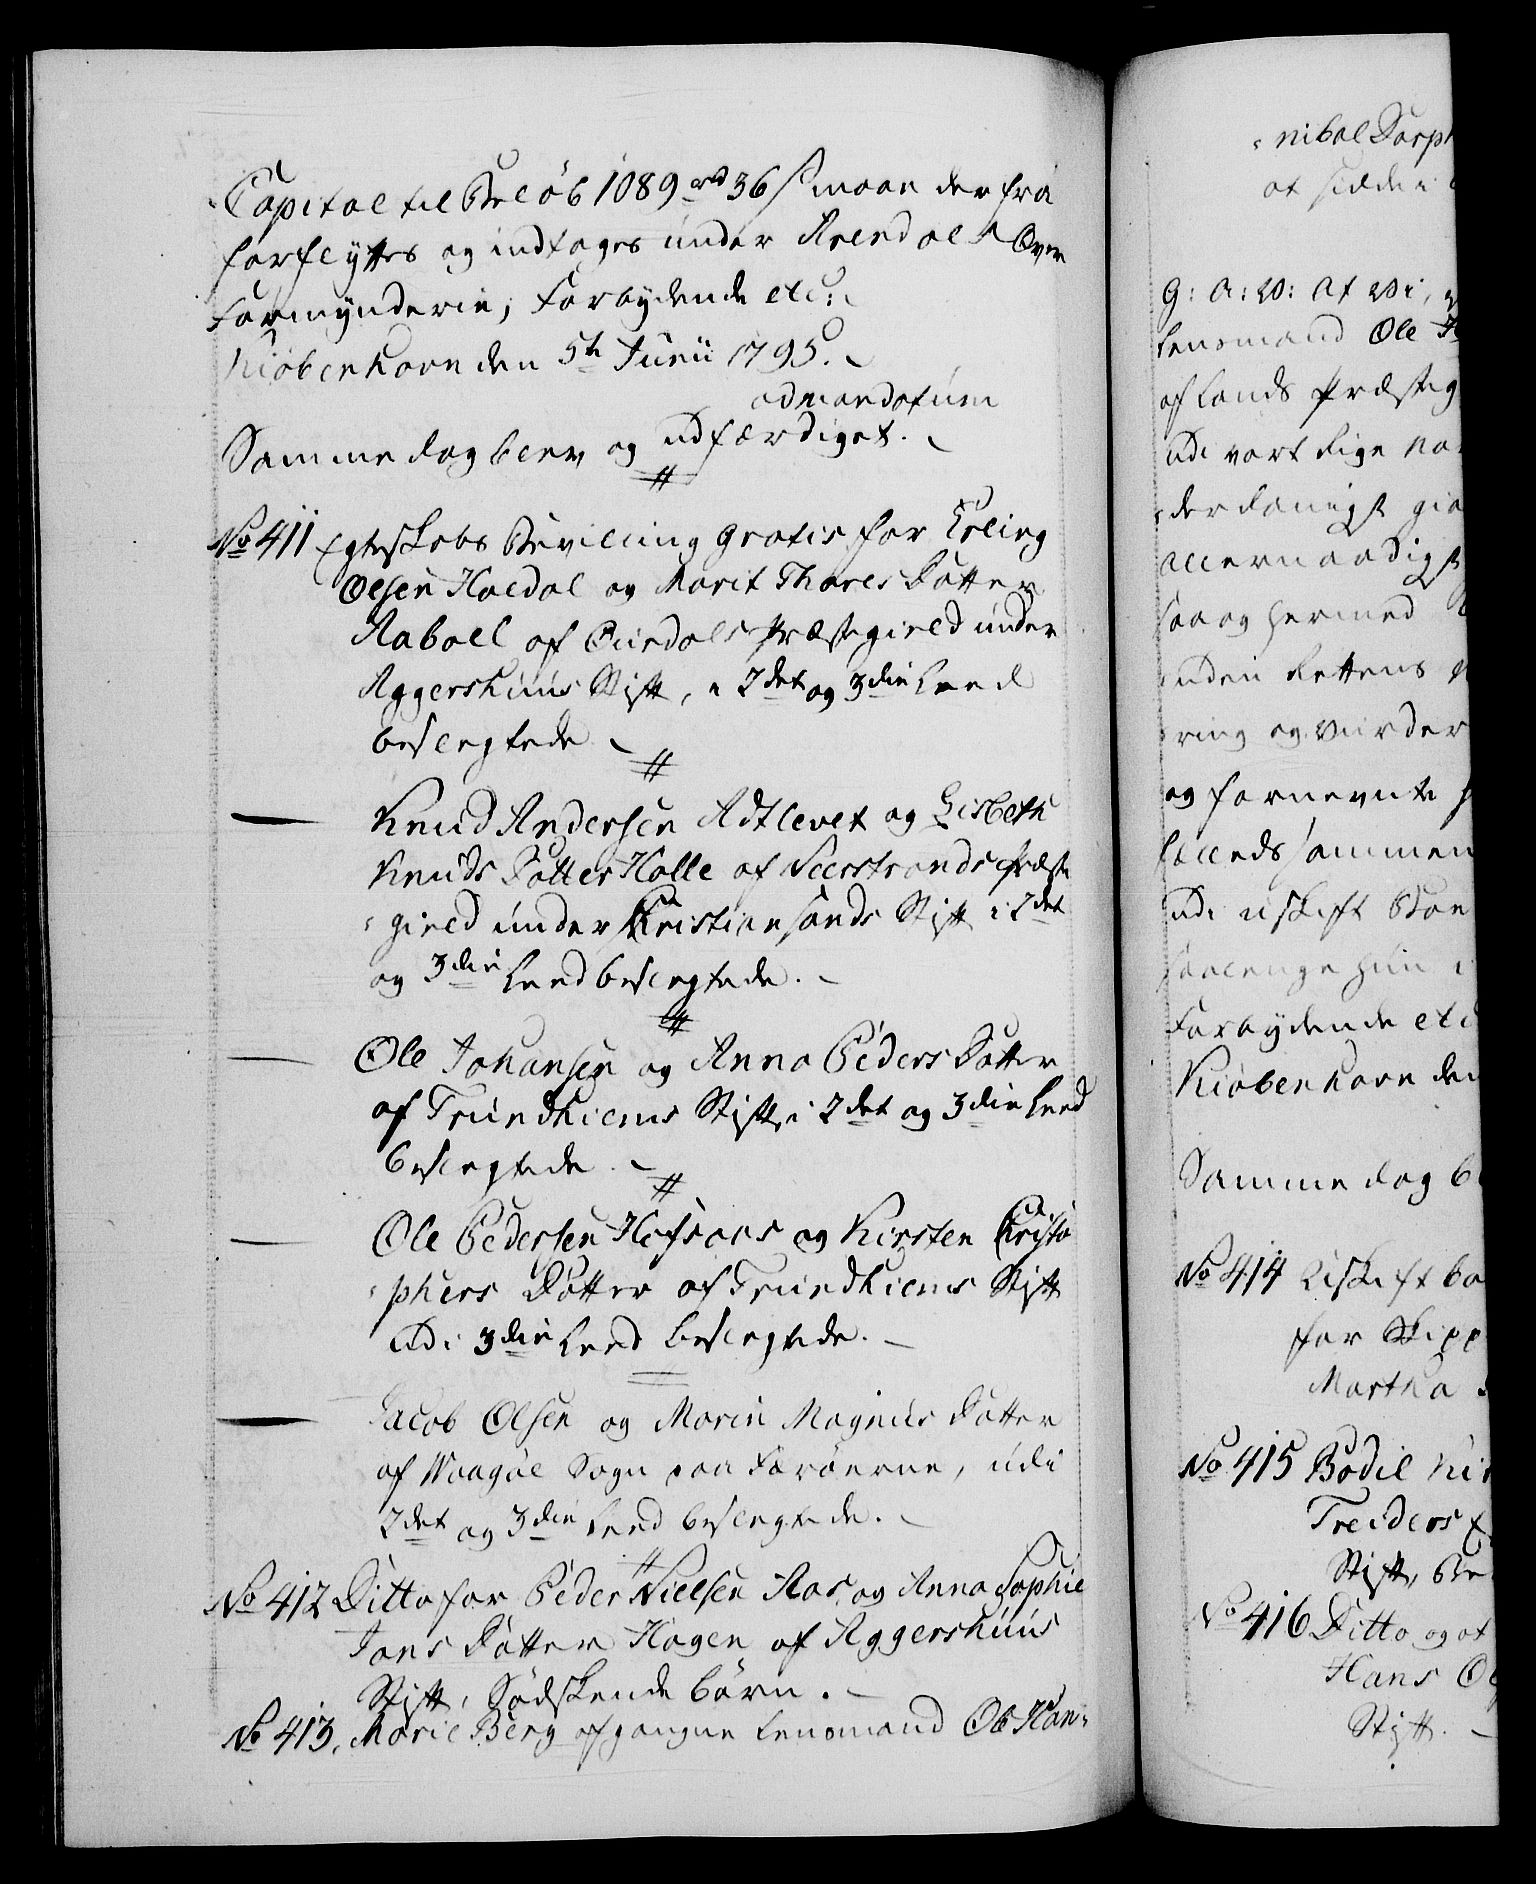 Capital til Beløb 1089 rd 36 s maae der fra
forflyttes og indtages under Arendals Over
Formynderie, Forbydende etc:
Kiøbenhavn den 5te Junii 1795.
ad mandatum
Samme dag blev og udfærdiget.
No 411 Egteskabs Bevilling gratis for Erling
Olsen Haldal og Marit Thores Datter
Aaboel af Præstegield under
Aggershuus Stift, i 2det og 3die Leed
beslegtede
Knud Andersen Adtlevet og Lisbeth
Knuds Datter Holle af Præste
gield under Christiansands Stift i 2det
og 3die Leed beslegtede.
Ole Johansen og Anna Peders Datter
af Trundhiems Stift, i 2det og 3die Leed
beslegtede.
Ole Pedersen og Kirsten Christo
phers Datter af Trundhiems Stift
udi 3die Leed beslegtede.
Jacob Olsen og Marin Magnus Datter
af Waagøe Sogn paa Færøerne, udi
2det og 3die Leed beslegtede.
No 412 Ditto for Peder Nielsen Aas og Anna Sophie
Jans Datter Hagen af Aggershuus
Stift, Sødskende børn.
No 413, Marie Berg afgangne Lensmand Ole Han-
nibal Sorph
at sidde i
G: A: V: At Vi,
Lensmand Ole
af Lands Præsteg
udi vort Rige No
derdanigst gia
allernaadigst
saa og hermed
uden Rettens
ring og Vurder
og fornevnte
fælleds sammen
udi uskift Boe
saalenge hun i
Forbydende etc
Kiøbenhavn den
Samme dag b
No 414 Uskift bo
for Skipp
Martha
No 415 Bodil Ni
Treiders
Stift, Be
No 416 Ditto og at
Hans O
Stift.